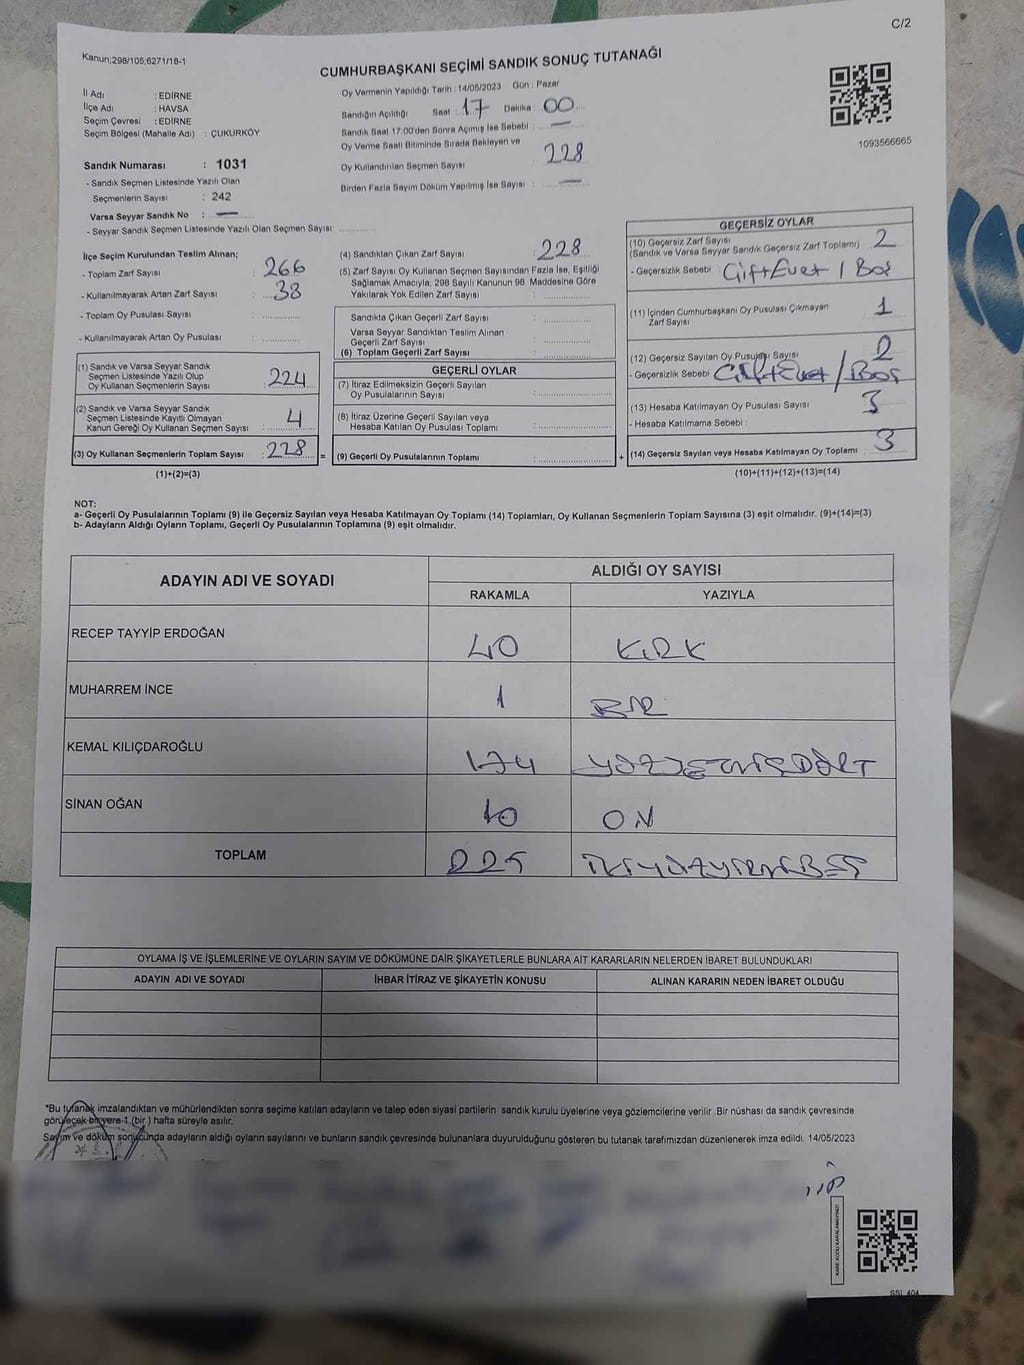 C/2
Kanun;298/105;6271/18-1
CUMHURBAŞKANI SEÇİMİ SANDIK SONUÇ TUTANAĞI
İl Adı : EDİRNE
İlçe Adı : HAVSA
Seçim Çevresi : EDİRNE
Seçim Bölgesi (Mahalle Adı) : ÇUKURKÖY
Sandık Numarası : 1031
- Sandık Seçmen Listesinde Yazılı Olan
Seçmenlerin Sayısı : 242
Varsa Seyyar Sandık No : —
- Seyyar Sandık Seçmen Listesinde Yazılı Olan Seçmen Sayısı:
Oy Vermenin Yapıldığı Tarih : 14/05/2023 Gün : Pazar
Sandığın Açıldığı Saat : 17 Dakika : 00
Sandık Saat 17:00'den Sonra Açımış İse Sebebi : —
Oy Verme Saati Bitiminde Sırada Bekleyen ve
Oy Kullandırılan Seçmen Sayısı : 228
Birden Fazla Sayım Döküm Yapılmış İse Sayısı : —
1093566665
İlçe Seçim Kurulundan Teslim Alınan;
- Toplam Zarf Sayısı : 266
- Kullanılmayarak Artan Zarf Sayısı : 38
- Toplam Oy Pusulası Sayısı :
- Kullanılmayarak Artan Oy Pusulası :
(1) Sandık ve Varsa Seyyar Sandık
Seçmen Listesinde Yazılı Olup
Oy Kullanan Seçmenlerin Sayısı : 224
(2) Sandık ve Varsa Seyyar Sandık
Seçmen Listesinde Kayıtlı Olmayan
Kanun Gereği Oy Kullanan Seçmen Sayısı : 4
(3) Oy Kullanan Seçmenlerin Toplam Sayısı : 228 =
(1)+(2)=(3)
(4) Sandıktan Çıkan Zarf Sayısı : 228
(5) Zarf Sayısı Oy Kullanan Seçmen Sayısından Fazla İse, Eşitliği
Sağlamak Amacıyla, 298 Sayılı Kanunun 98. Maddesine Göre
Yakılarak Yok Edilen Zarf Sayısı :
Sandıkta Çıkan Geçerli Zarf Sayısı :
Varsa Seyyar Sandıktan Teslim Alınan
Geçerli Zarf Sayısı :
(6) Toplam Geçerli Zarf Sayısı :
GEÇERLİ OYLAR
(7) İtiraz Edilmeksizin Geçerli Sayılan
Oy Pusulalarının Sayısı :
(8) İtiraz Üzerine Geçerli Sayılan veya
Hesaba Katılan Oy Pusulası Toplamı :
(9) Geçerli Oy Pusulalarının Toplamı : +
GEÇERSİZ OYLAR
(10) Geçersiz Zarf Sayısı
(Sandık ve Varsa Seyyar Sandık Geçersiz Zarf Toplamı) 2
- Geçersizlik Sebebi : Çift Evet / Boş
(11) İçinden Cumhurbaşkanı Oy Pusulası Çıkmayan
Zarf Sayısı 1
(12) Geçersiz Sayılan Oy Pusulası Sayısı 2
- Geçersizlik Sebebi : Çift Evet / Boş
(13) Hesaba Katılmayan Oy Pusulası Sayısı 3
- Hesaba Katılmama Sebebi :
(14) Geçersiz Sayılan veya Hesaba Katılmayan Oy Toplamı 3
(10)+(11)+(12)+(13)=(14)
NOT:
a- Geçerli Oy Pusulalarının Toplamı (9) ile Geçersiz Sayılan veya Hesaba Katılmayan Oy Toplamı (14) Toplamları, Oy Kullanan Seçmenlerin Toplam Sayısına (3) eşit olmalıdır. (9)+(14)=(3)
b- Adayların Aldığı Oyların Toplamı, Geçerli Oy Pusulalarının Toplamına (9) eşit olmalıdır.
ADAYIN ADI VE SOYADI ALDIĞI OY SAYISI
RAKAMLA YAZIYLA
RECEP TAYYİP ERDOĞAN 40 KIRK
MUHARREM İNCE 1 BİR
KEMAL KILIÇDAROĞLU 174 YÜZYETMİŞDÖRT
SİNAN OĞAN 10 ON
TOPLAM 225 İKİYÜZYİRMİBEŞ
OYLAMA İŞ VE İŞLEMLERİNE VE OYLARIN SAYIM VE DÖKÜMÜNE DAİR ŞİKAYETLERLE BUNLARA AİT KARARLARIN NELERDEN İBARET BULUNDUKLARI
ADAYIN ADI VE SOYADI İHBAR İTİRAZ VE ŞİKAYETİN KONUSU ALINAN KARARIN NEDEN İBARET OLDUĞU
*Bu tutanak imzalandıktan ve mühürlendikten sonra seçime katılan adayların ve talep eden siyasi partilerin sandık kurulu üyelerine veya gözlemcilerine verilir. Bir nüshası da sandık çevresinde
görülecek bir yere 1 (bir ) hafta süreyle asılır.
Sayım ve döküm sonucunda adayların aldığı oyların sayılarını ve bunların sandık çevresinde bulunanlara duyurulduğunu gösteren bu tutanak tarafımızdan düzenlenerek imza edildi. 14/05/2023
KARE KODU KARALAMAYINIZ!
SSL 404